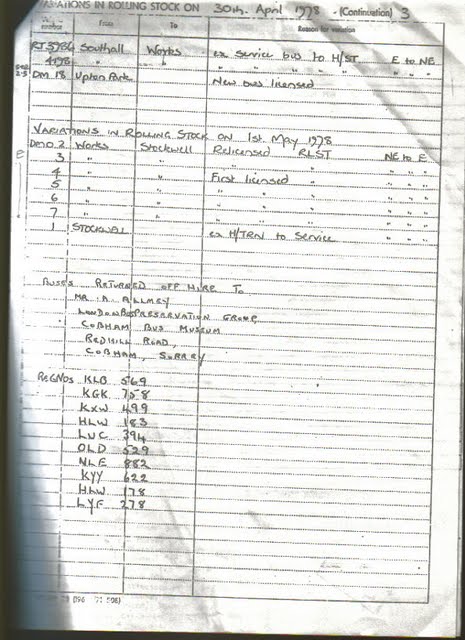 VARIATIONS IN ROLLING STOCK ON 30th. April 1978 - (Continuation) 3
From To Reason for variation
Southall Works ex service bus to H/ST E to NE
4198 " " " " " " " " " "
DM. 18 Upton Park New bus licensed
VARIATIONS IN ROLLING STOCK ON 1st. May 1978
DMO. 2 Works Stockwell Relicensed RLST NE to E
E 3 " " " " " " "
4 " " First licensed " " " "
5 " " " " " " "
6 " " " " " " "
7 " " " " " " "
1 STOCKWELL ex H/TRN to Service " " "
BUSES RETURNED OFF HIRE TO
MR. A. ALLMEY
LONDON BUS PRESERVATION GROUP,
COBHAM BUS MUSEUM
REDHILL ROAD,
COBHAM, SURREY
REGNOS KLB 569
KGK 758
KXW 499
HLW 183
LUC 394
OLD 529
NLE 882
KYY 622
HLW 178
LYF 278